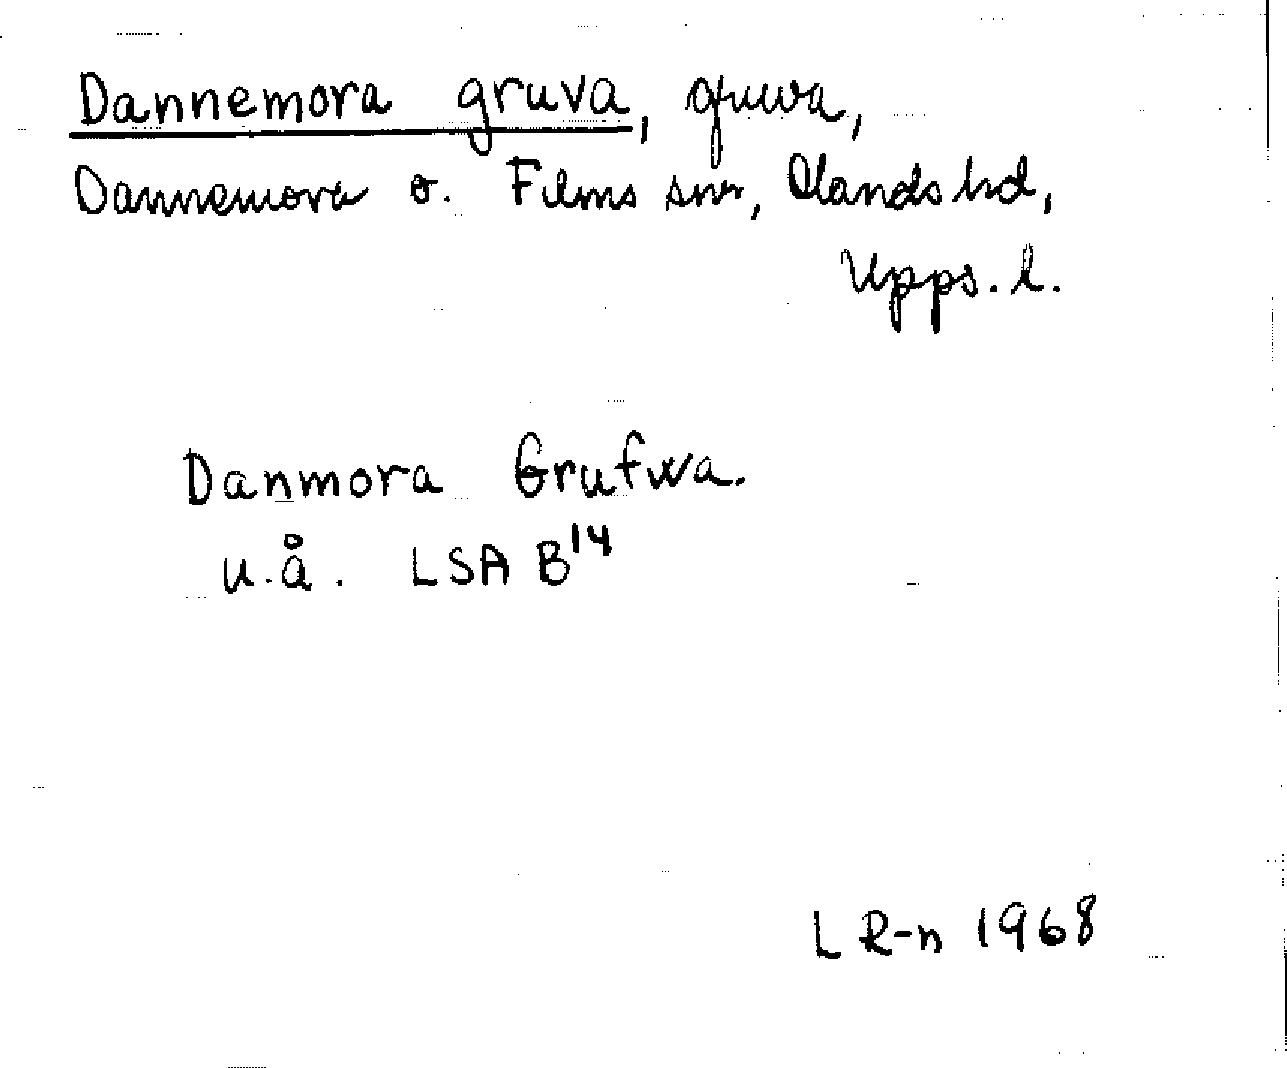 Dannemora gruva, gruva,
Dannemora o. Films snr, Olands hd,
Upps. l.
Danmora Grufwa.
u.å. LSA B14
L R-n 1968